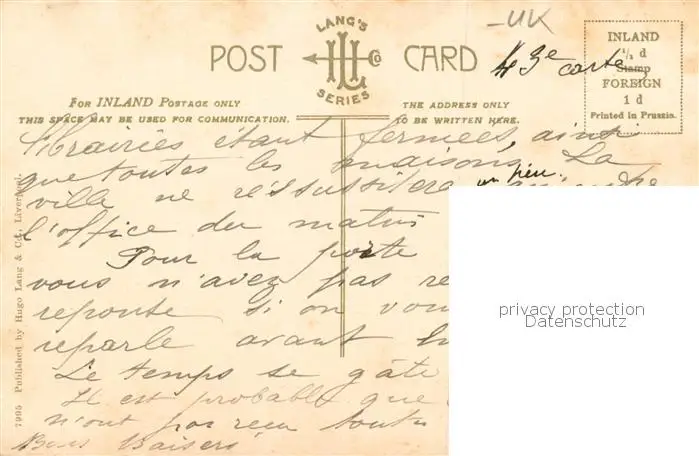 -UK
LANG'S
POST CARD
HL Co
SERIES
INLAND
½ d
Stamp
FOREIGN
1 d
Printed in Prussia.
3e carte
FOR INLAND POSTAGE ONLY
THIS SPACE MAY BE USED FOR COMMUNICATION.
THE ADDRESS ONLY
TO BE WRITTEN HERE.
librairies étant fermées, ainsi
que toutes les maisons. La
ville ne ressuscitera un peu
l'office du matin
Pour la porte
vous n'avez pas re
reponse si on vou
reparle avant
Le temps se gâte
Il est probable que
n'ont pas reçu toutes
Bons Baisers
7905 Published by Hugo Lang & Co., Liverpool.
privacy protection
Datenschutz